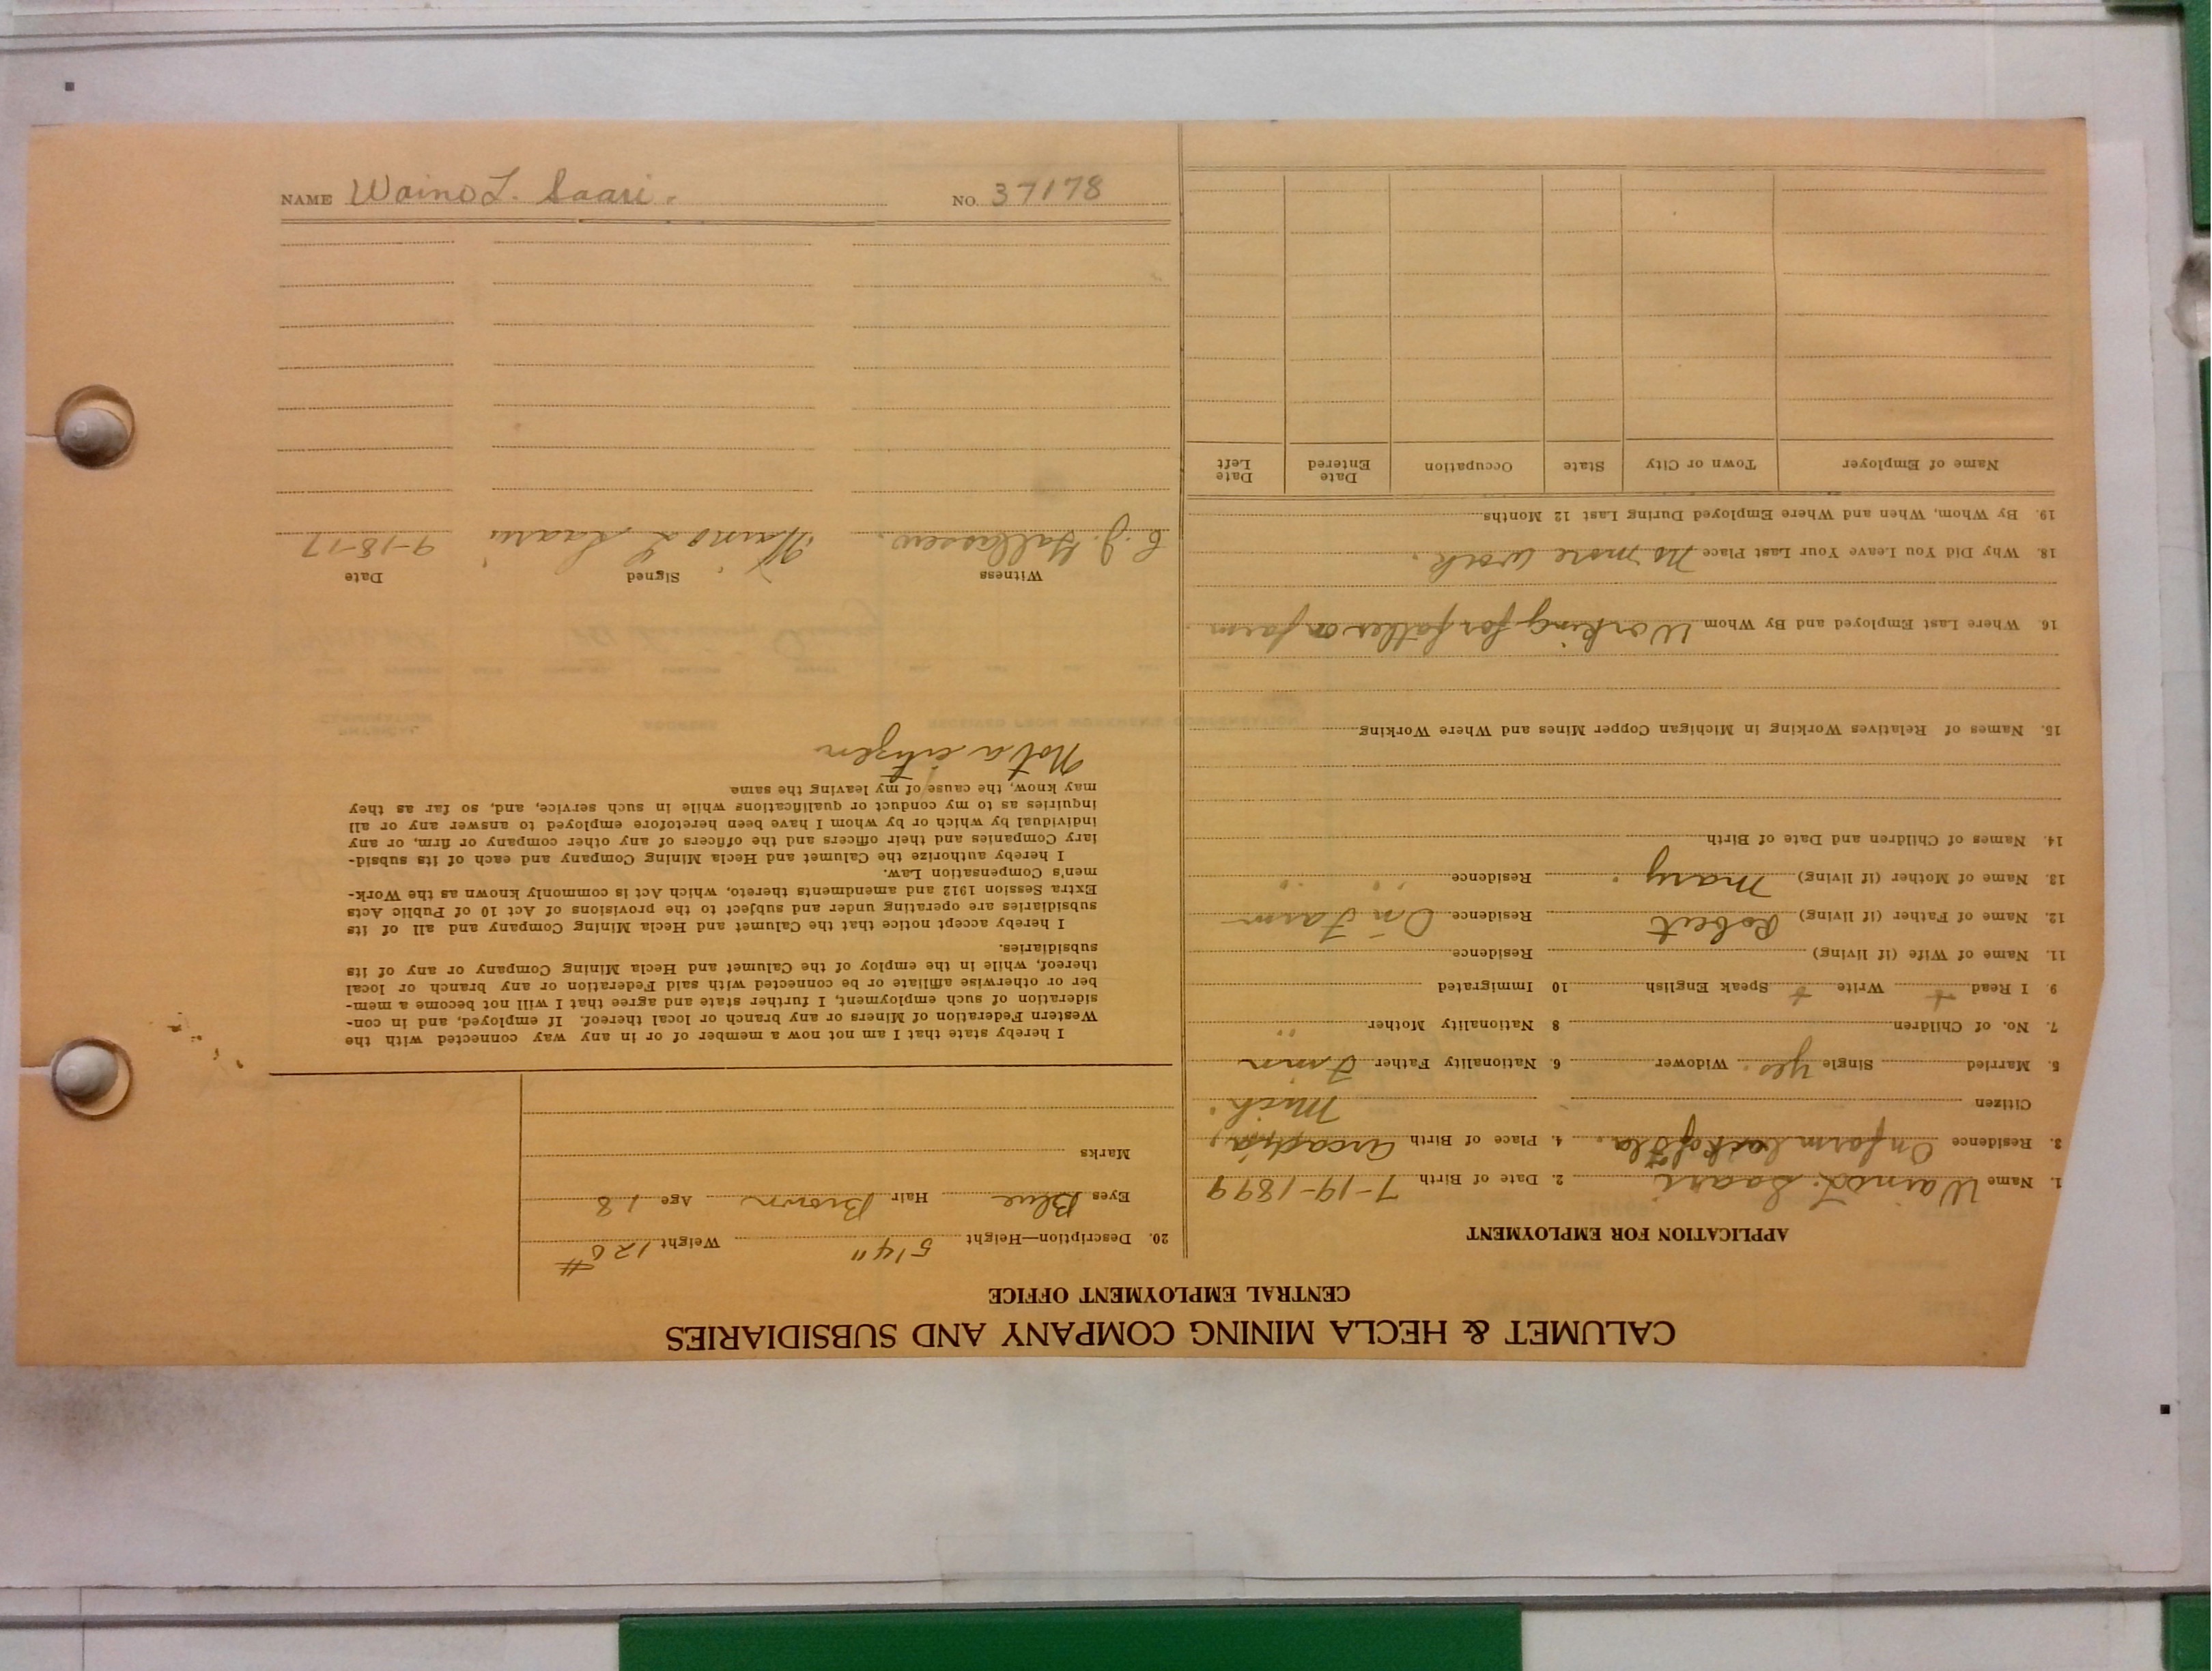 CALUMET & HECLA MINING COMPANY AND SUBSIDIARIES
CENTRAL EMPLOYMENT OFFICE
APPLICATION FOR EMPLOYMENT
1. Name Waino L. Saari 2. Date of Birth 7-19-1899
3. Residence On farm back of Ola. 4. Place of Birth Arcadia,
Citizen Mich.
5. Married Single yes. Widower 6. Nationality Father Finn
7. No. of Children 8 Nationality Mother " "
9. I Read + Write + Speak English 10 Immigrated
11. Name of Wife (if living) Residence
12. Name of Father (if living) Robert Residence On Farm
13. Name of Mother (if living) Mary. Residence " "
14. Names of Children and Date of Birth
15. Names of Relatives Working in Michigan Copper Mines and Where Working
16. Where Last Employed and By Whom Working for father on farm
18. Why Did You Leave Your Last Place No more work.
19. By Whom, When and Where Employed During Last 12 Months
Name of Employer Town or City State Occupation Date Entered Date Left
20. Description—Height 5'4" Weight 120#
Eyes Blue Hair Brown Age 18
Marks
I hereby state that I am not now a member of or in any way connected with the
Western Federation of Miners or any branch or local thereof. If employed, and in con-
sideration of such employment, I further state and agree that I will not become a mem-
ber or otherwise affiliate or be connected with said Federation or any branch or local
thereof, while in the employ of the Calumet and Hecla Mining Company or any of its
subsidiaries.
I hereby accept notice that the Calumet and Hecla Mining Company and all of its
subsidiaries are operating under and subject to the provisions of Act 10 of Public Acts
Extra Session 1912 and amendments thereto, which Act is commonly known as the Work-
men's Compensation Law.
I hereby authorize the Calumet and Hecla Mining Company and each of its subsid-
iary Companies and their officers and the officers of any other company or firm, or any
individual by which or by whom I have been heretofore employed to answer any or all
inquiries as to my conduct or qualifications while in such service, and, so far as they
may know, the cause of my leaving the same.
Not a citizen
Witness Signed Date
Waino L Saari 9-18-17
NAME Waino L. Saari. NO. 37178